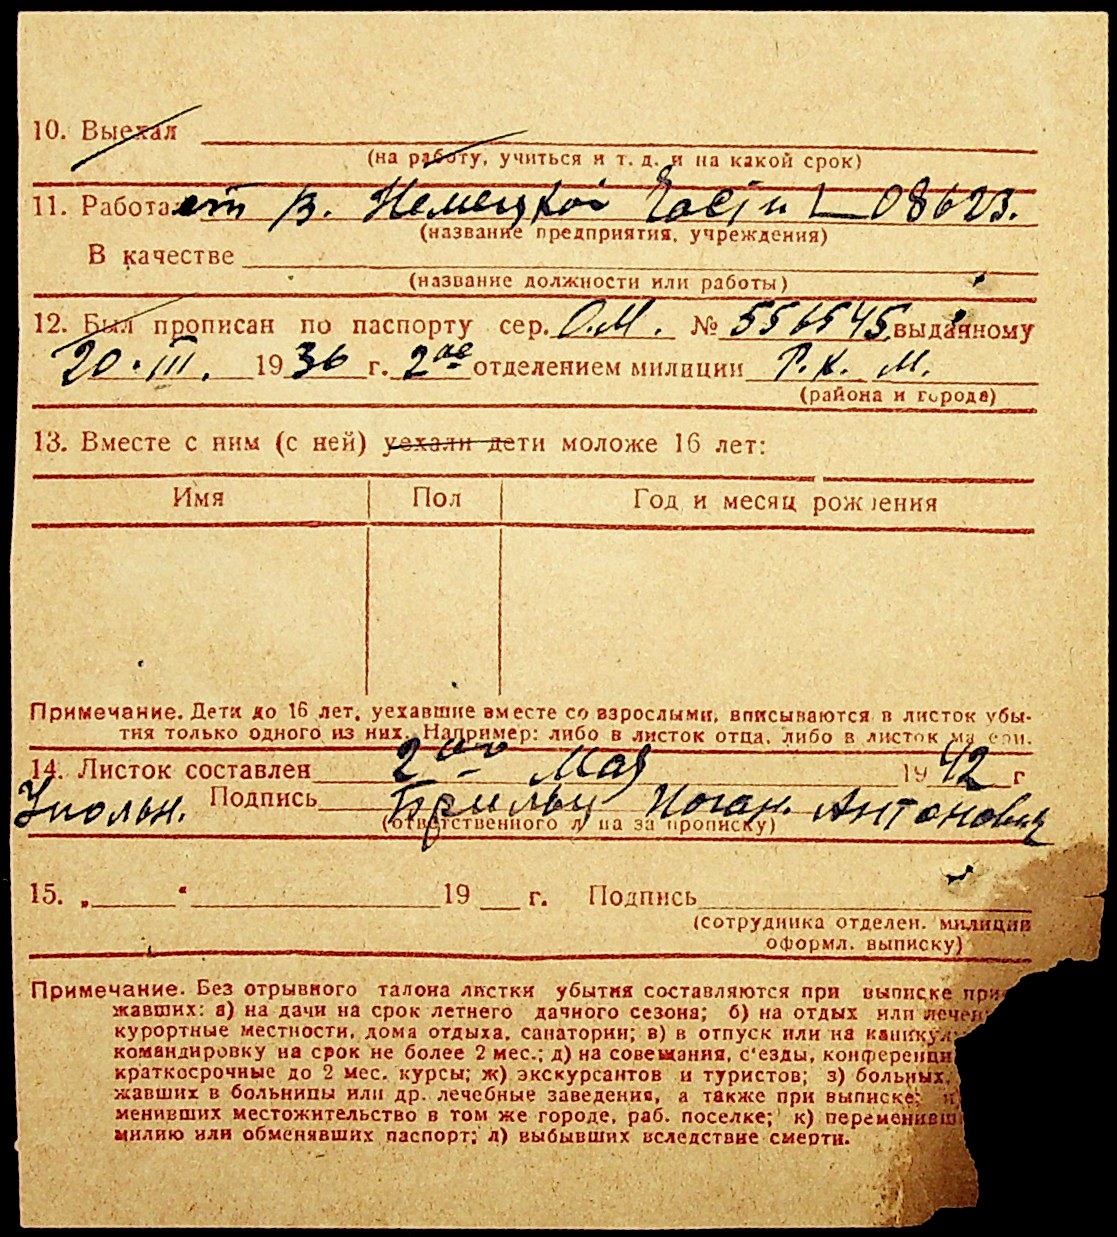 10. Выехал
(на работу, учиться и т. д. и на какой срок)
11. Работает в. Немецкой Части L 08623.
(название предприятия, учреждения)
В качестве
(название должности или работы)
12. Был прописан по паспорту сер. О.М. № 556545. выданному
20.III. 1936 г. 2ое отделением милиции Р.К.М.
(района и города)
13. Вместе с ним (с ней) уехали дети моложе 16 лет:
Имя Пол Год и месяц рождения
Примечание. Дети до 16 лет, уехавшие вместе со взрослыми, вписываются в листок убы-
тия только одного из них. Например: либо в листок отца, либо в листок матери.
14. Листок составлен 2го Мая 1942 г
Уполн. Подпись Антонович
(ответственного лица за прописку)
15. „ " 19 г. Подпись
(сотрудника отделен. милиции
оформл. выписку)
Примечание. Без отрывного талона листки убытия составляются при выписке
жавших: а) на дачи на срок летнего дачного сезона; б) на отдых или
курортные местности, дома отдыха, санатории; в) в отпуск или на
командировку на срок не более 2 мес.; д) на совещания, с'езды,
краткосрочные до 2 мес. курсы; ж) экскурсантов и туристов; з) больных,
жавших в больницы или др. лечебные заведения, а также при выписке:
менивших местожительство в том же городе, раб. поселке; к)
милию или обменявших паспорт; л) выбывших вследствие смерти.